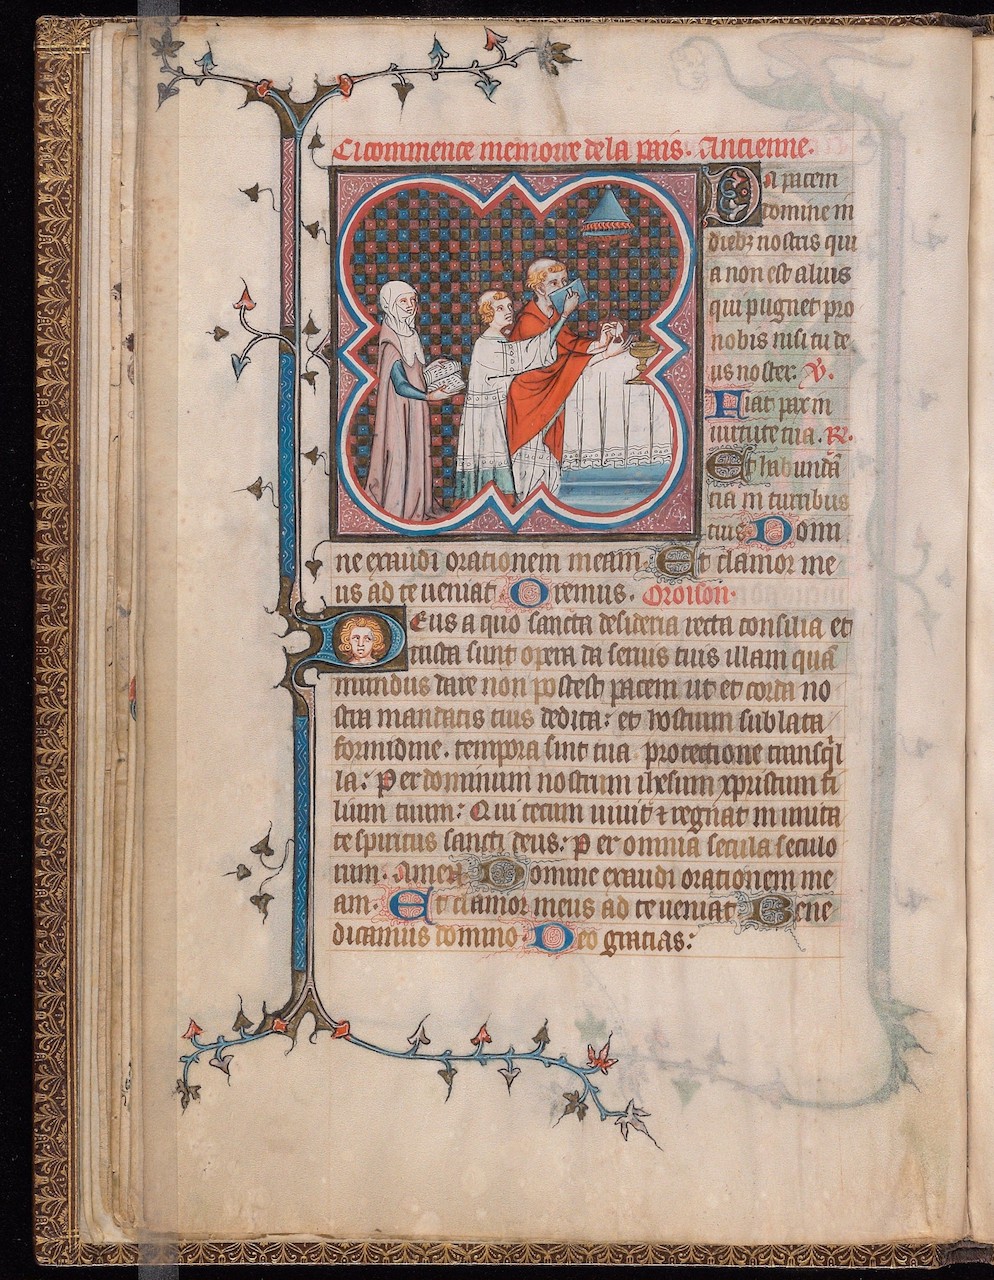 Ci commence memoire de la pais. Ancienne.
Da pacem
domine in
diebꝫ nostris qui
a non est alius
qui pugnet pro
nobis nisi tu de
us noster. V.
Fiat pax in
uirtute tua. R.
Et habundā
tia in turribus
tuis Domi
ne exaudi orationem meam. Et clamor me
us ad te ueniat Oremus. Oroison.
Deus a quo sancta desideria recta consilia et
iusta sunt opera da seruis tuis illam quā
mundus dare non potest pacem ut et corda no
stra mandatis tuis dedita: et hostium sublata
formidine. tempora sint tua protectione tranq̇l
la: Per dominum nostrum ihesum xpristum fi
lium tuum: Qui tecum uiuit ⁊ regnat in unita
te spiritus sancti deus: Per omnia secula seculo
rum. Amen Domine exaudi orationem me
am. Et clamor meus ad te ueniat Bene
dicamus domino Deo gracias: